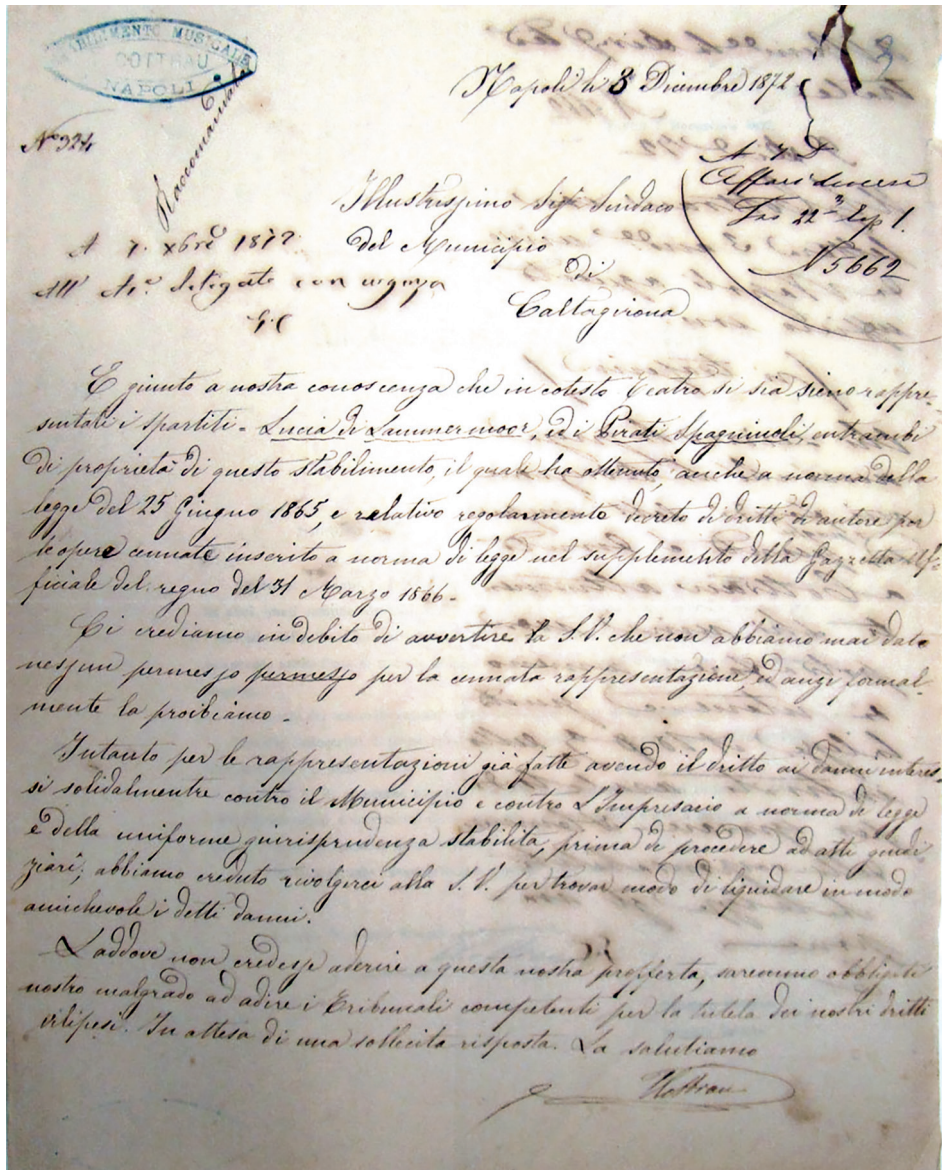 STABILIMENTO MUSICALE
COTTRAU
NAPOLI
Raccomandata
Nº 324
Napoli li 3 Dicembre 1872
A 7 D
Affari diversi
N 5662
Illustrissimo Sigr Sindaco
del Municipio
di
Caltagirona
A 7. xbre 1872
con urgenza
G.C
È giunto a nostra conoscenza che in cotesto Teatro si sia sieno rappre-
sentati i spartiti - Lucia di Lammermoor, ed i Pirati Spagnuoli, entrambi
di proprietà di questo stabilimento, il quale ha ottenuto, anche a norma della
legge del 25 Giugno 1865, e relativo regolamento decreto di dritti di autore per
le opere cennate inserito a norma di legge nel supplemento della Gazzetta Uf-
ficiale del regno del 31 Marzo 1866 -
Ci crediamo in debito di avvertire la S.V. che non abbiamo mai dato
nessun permesso permesso per la cennata rappresentazione, ed anzi formal-
mente la proibiamo -
Intanto per le rappresentazioni già fatte avendo il dritto ai danni interes-
si solidalmentre contro il Municipio e contro L'Impresario a norma di legge
e della uniforme giurisprudenza stabilita, prima di procedere ad atti giudi
ziarî; abbiamo creduto rivolgerci alla S. V. per trovar modo di liquidare in modo
amichevole i detti danni.
Laddove non credesse aderire a questa nostra profferta, saremmo obbligati
nostro malgrado ad adire i Tribunali competenti per la tutela dei nostri dritti
vilipesi. In attesa di una sollecita risposta. La salutiamo
Cottrau